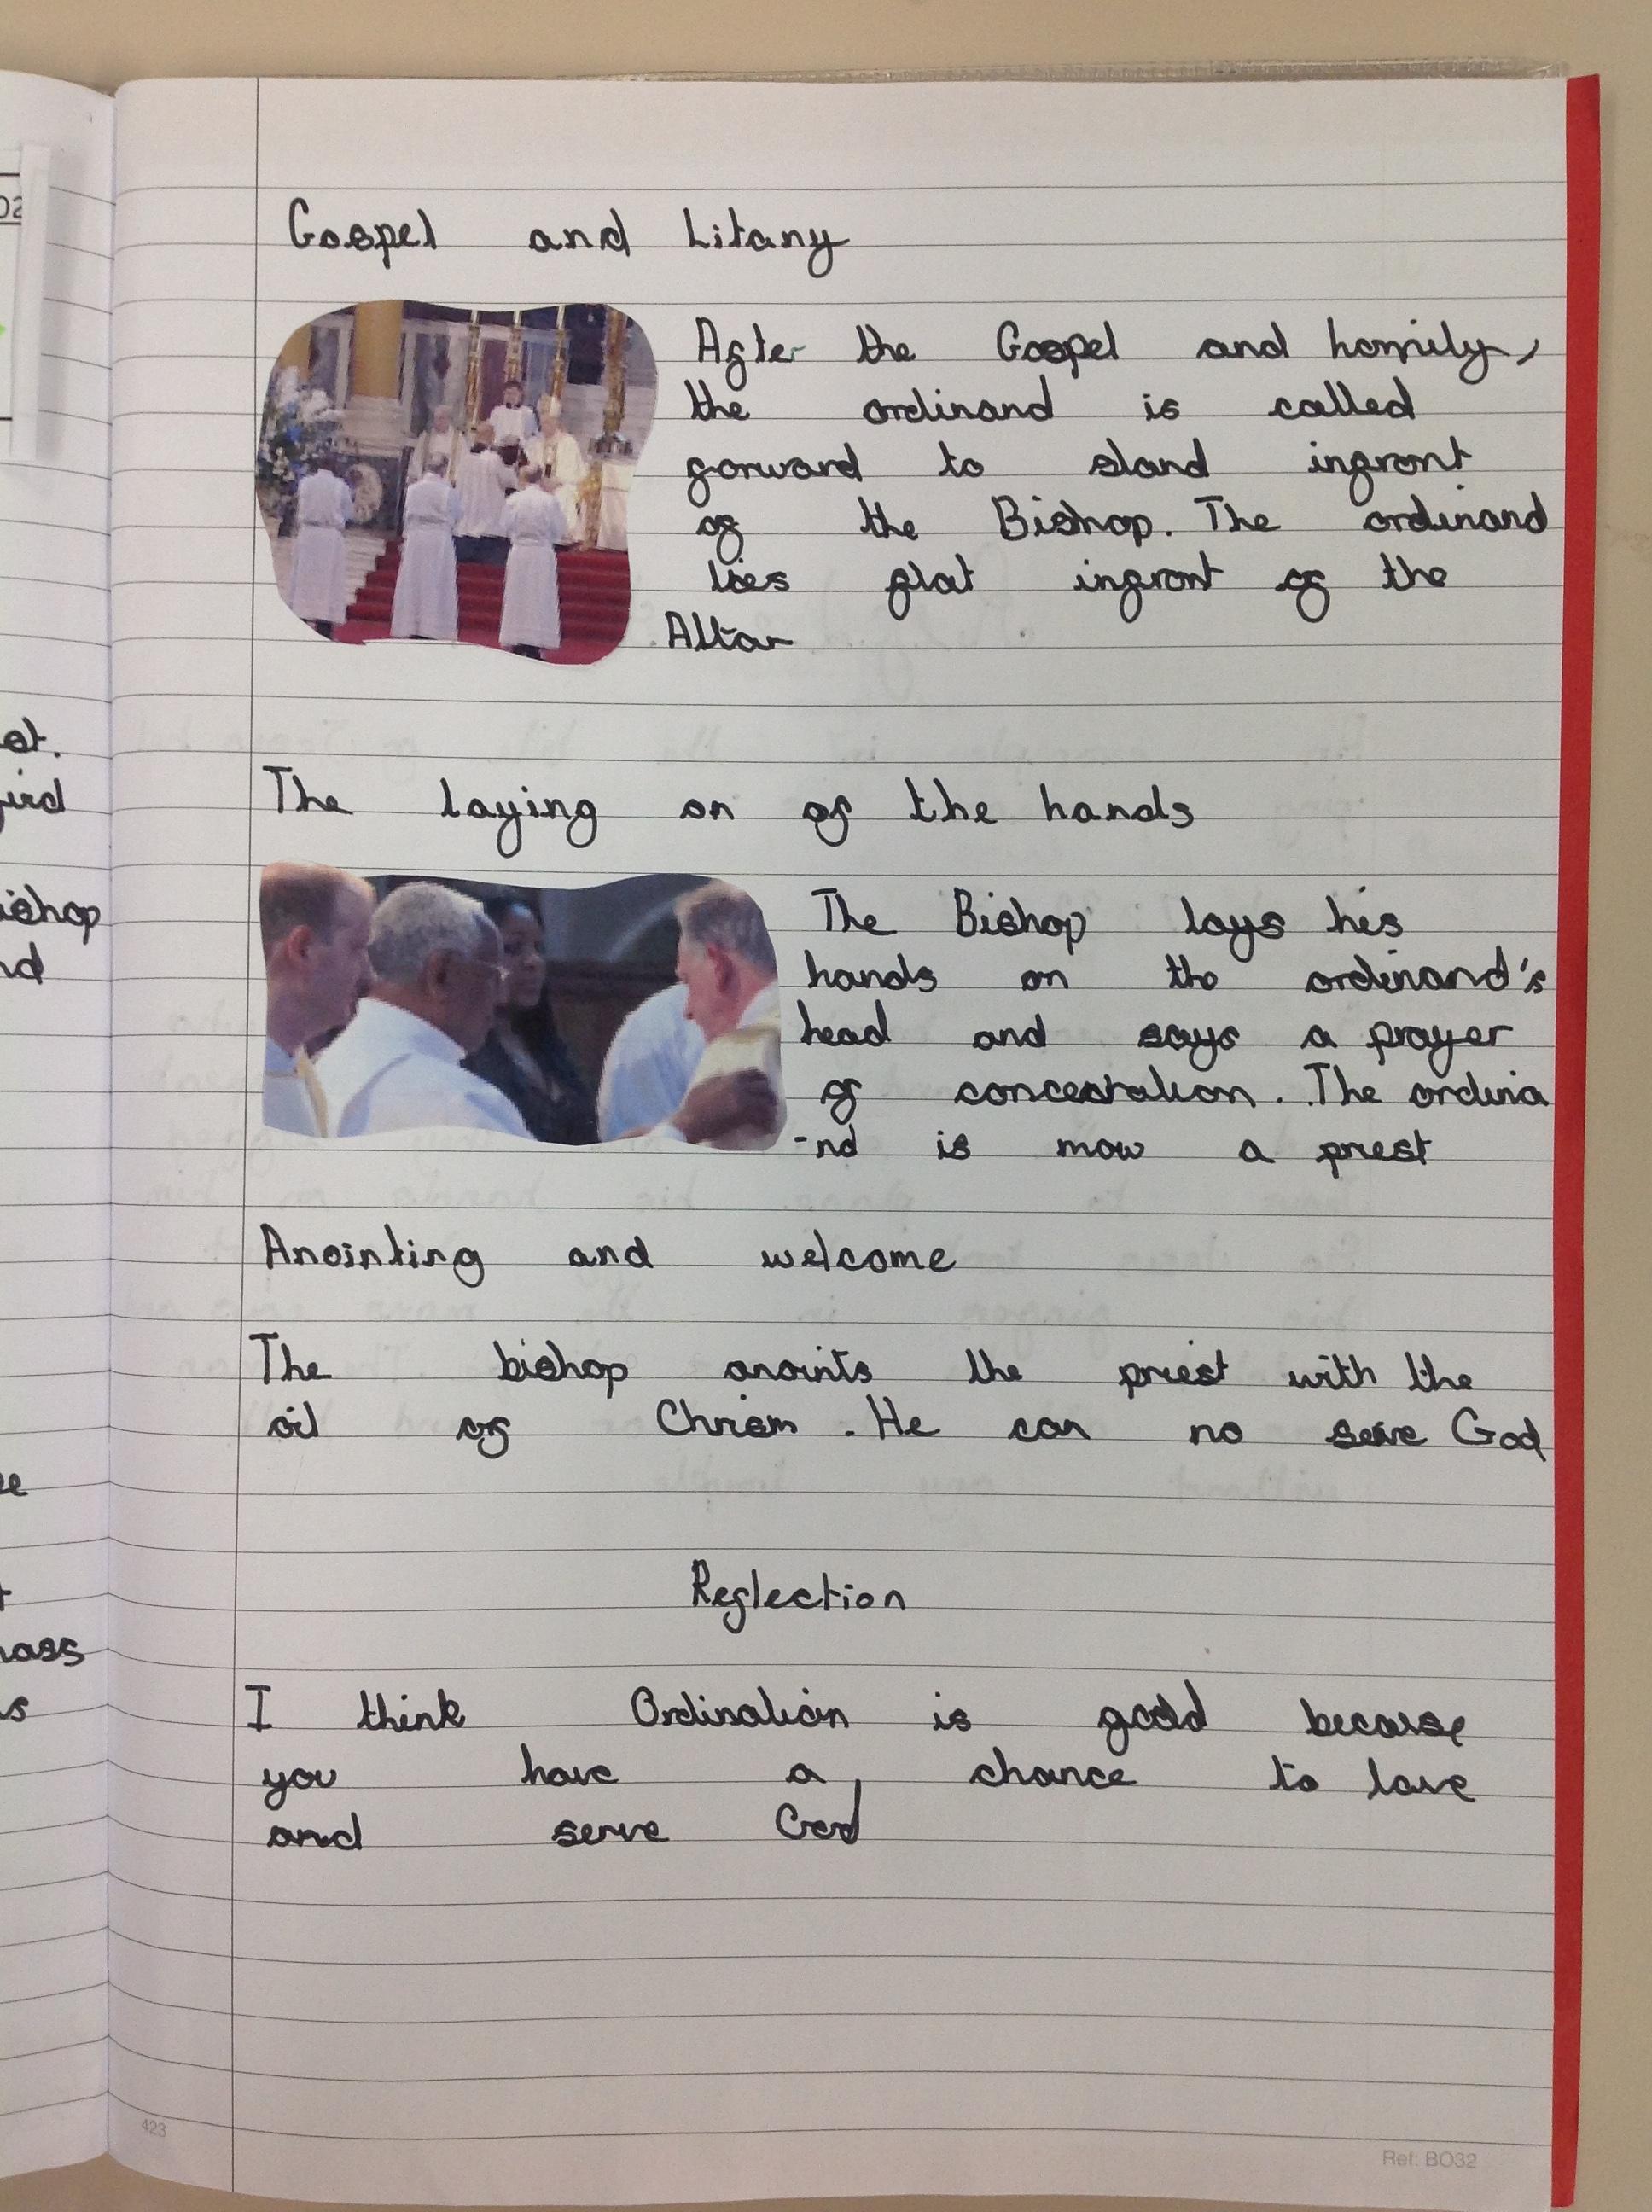 Gospel and Litany
After the Gospel and homily,
the ordinand is called
forward to stand infront
of the Bishop. The ordinand
lies flat infront of the
Altar
The laying on of the hands
The Bishop lays his
hands on the ordinand's
head and says a prayer
of concecration. The ordina
-nd is mow a priest
Anointing and welcome
The bishop anoints the priest with the
oil of Chrism. He can no serve God
Reflection
I think Ordination is good because
you have a chance to love
and serve God
423
Ref: BO32
02
ishop
nd
mass